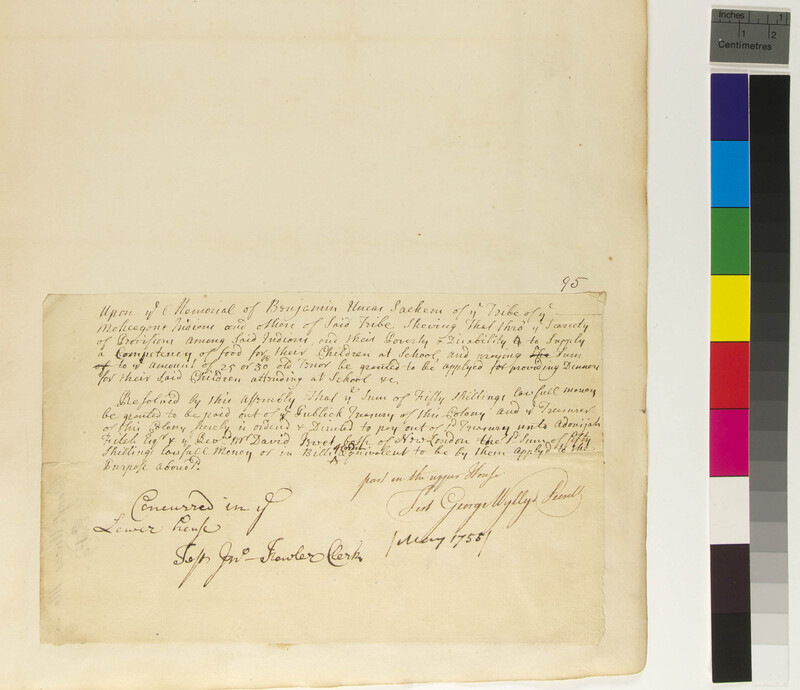 Inches 1
1 2
Centimetres
95
Upon yᵉ Memorial of Benjamin Uncas Sachem of yᵉ Tribe of yᵉ
Moheegan Indians and others of Said Tribe Shewing That thro yᵉ Scarcity
of Provisions Among Said Indians, and their Poverty & Disability to Supply
a Competency of food for their Children at School, and praying Sum
of to yᵉ amount of 25 or 30£ old Tenor be granted to be applyed for providing Dinners
for their Said Children attending at School &c.
Resolved by this Assembly That yᵉ Sum of Fifty Shillings lawfull money
be granted to be paid out of yᵉ Publick Treasury of this Colony and yᵉ Treasurer
of this Colony hereby is orderd & Directed to pay out of sᵈ Treasury unto Adonijah
Fitch Esqʳ & yᵉ Revᵈ Mʳ David Jewet both of New London the sᵈ Sum of fifty
Shillings lawfull Money or in Bills of Credit Equivalent to be by them applyd to the
Purpose abovesᵈ.
past in the upper House
Test George Wyllys Secret
Concurred in yᵉ
Lower house
Test Jnᵒ Fowler Clerk
/ May 1755 /